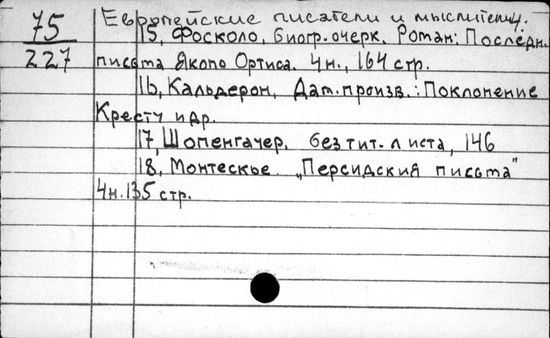 75
227
Европейские писатели и мыслители.
15, Фосколо, Биогр. очерк. Роман: Последн.
письма Якопо Ортиса. 4н., 164 стр.
16, Кальдерон, Дат. произв.: Поклонение
Кресту и др.
17, Шопенгауер. без тит. листа, 146
18, Монтескье. „Персидския письма"
4н. 135 стр.